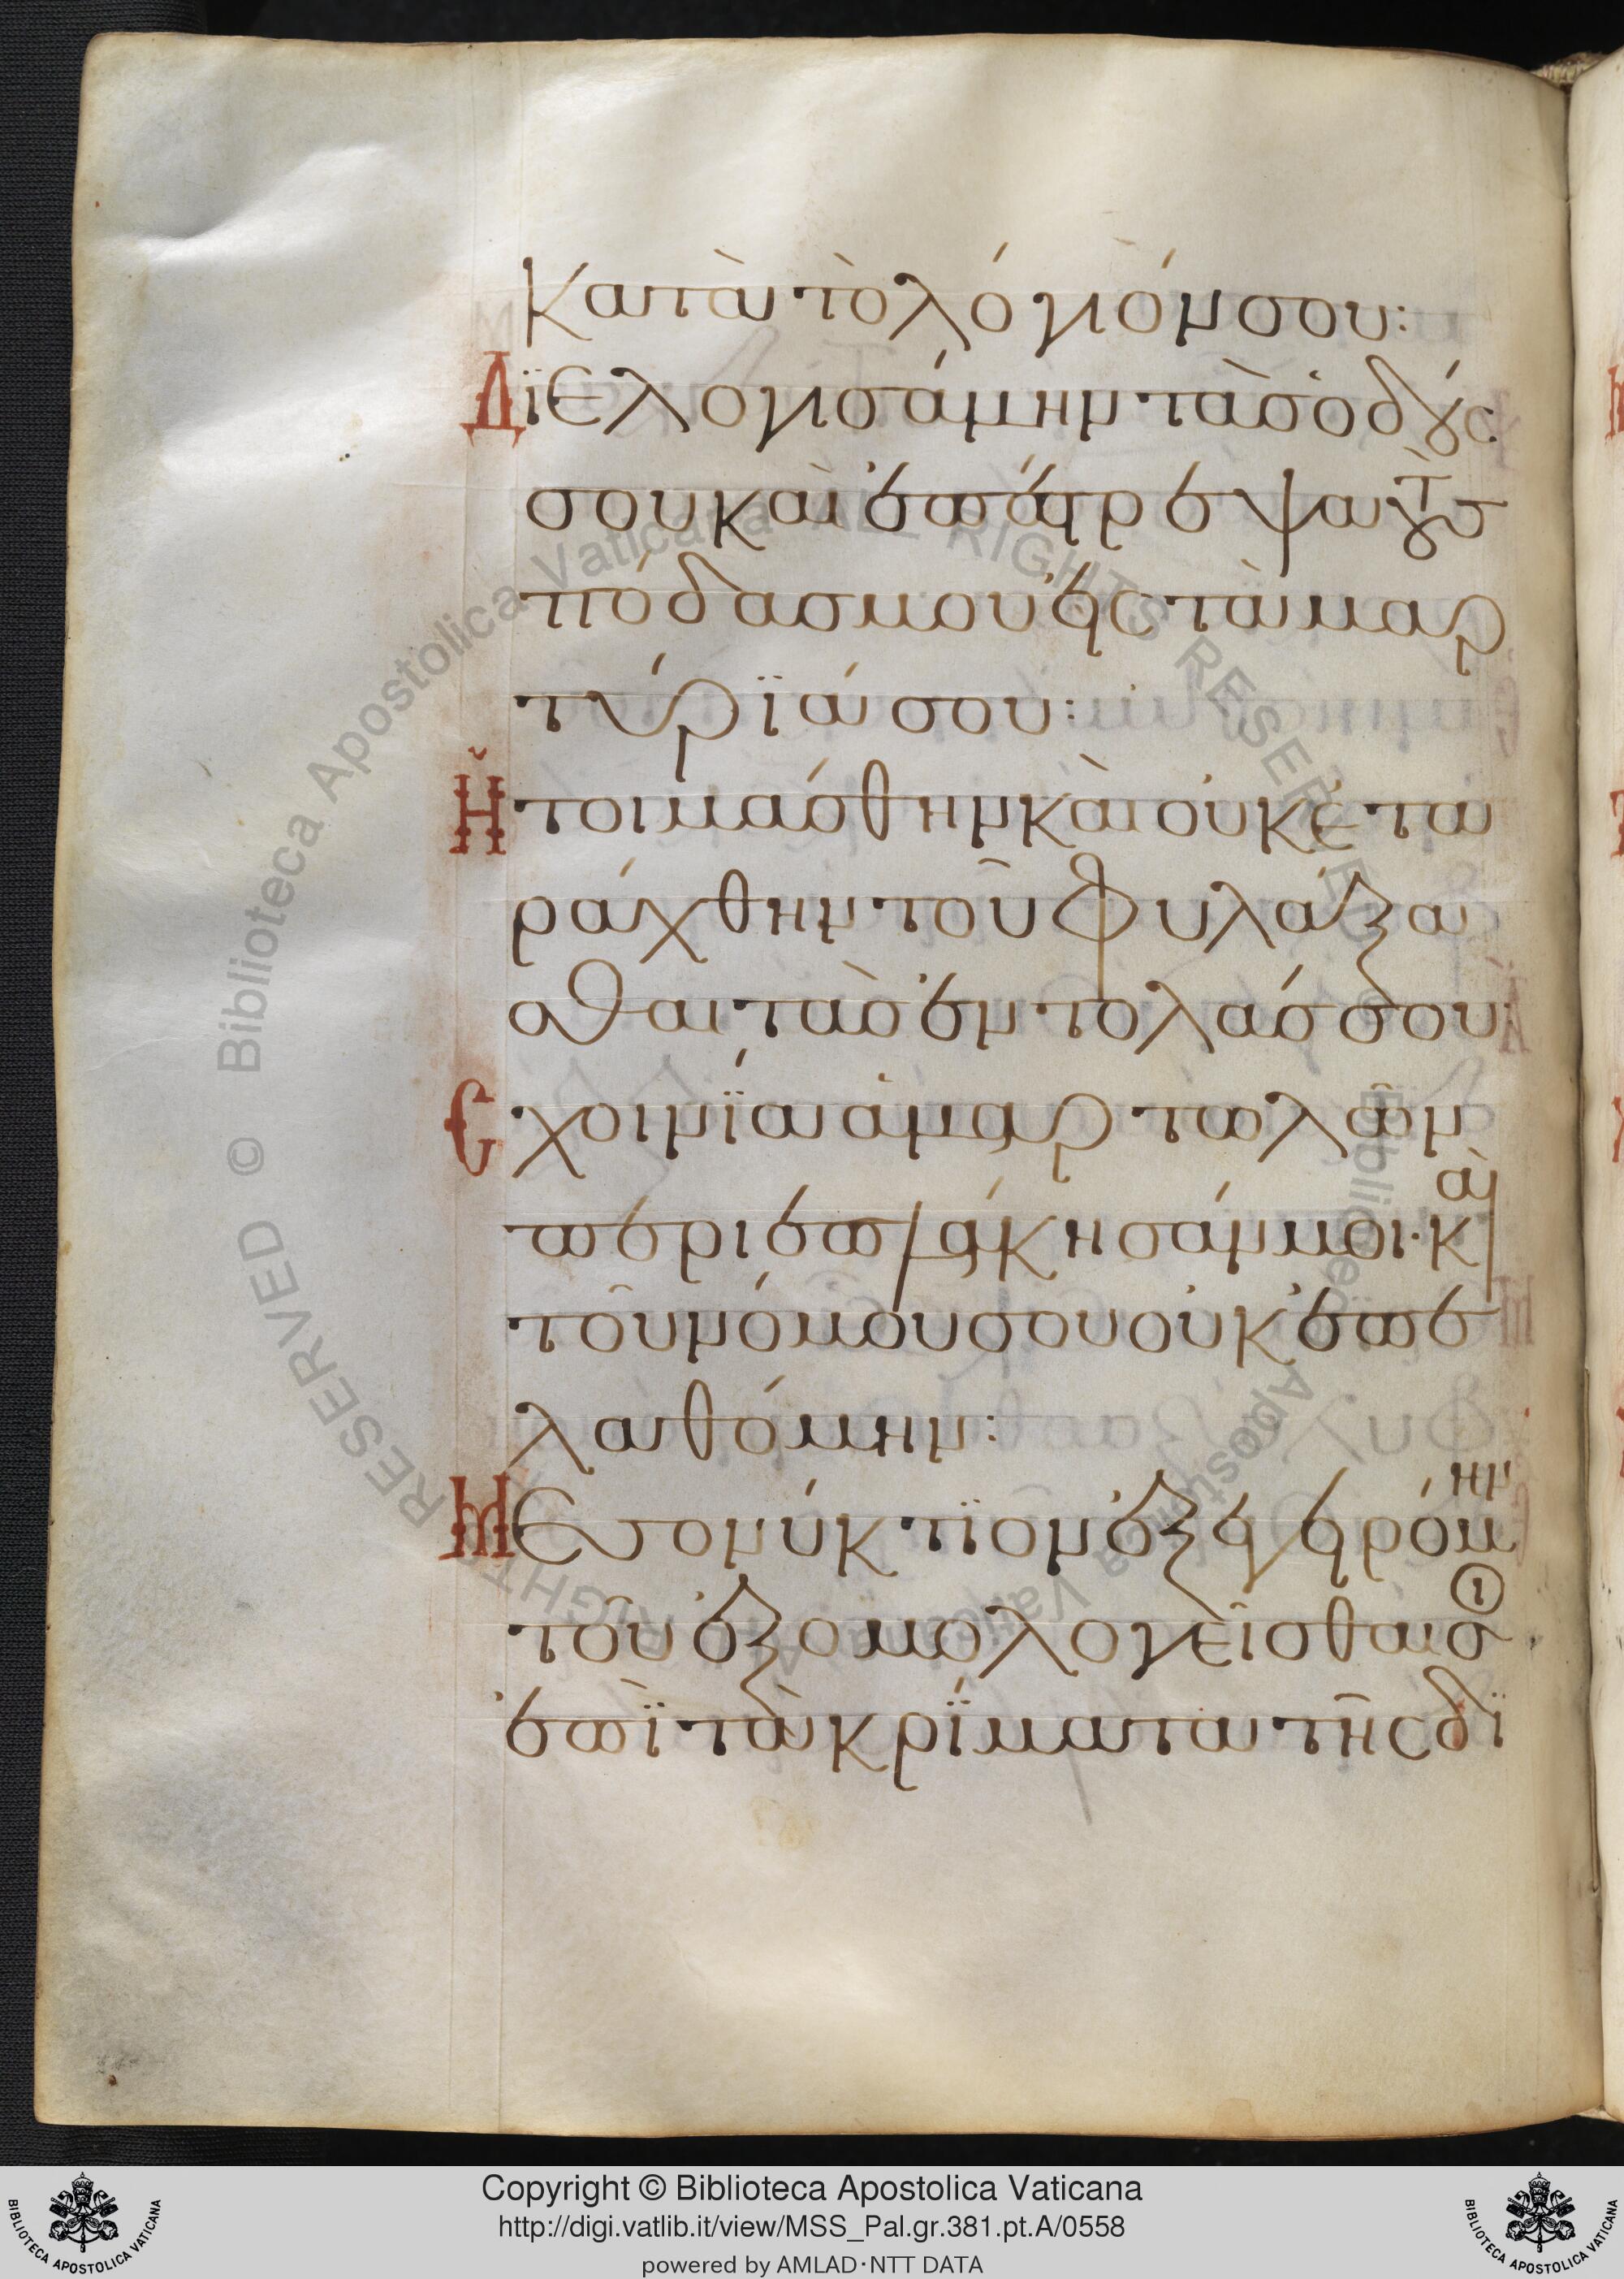 Κατὰ τὸ λόγιόν σου:
Διελογισάμην τὰς ὁδούς
σου καὶ ἐπέστρεψα τοὺς
πόδας μου εἰς τὰ μαρ
τύρϊά σου:
Ἡτοιμάσθην καὶ οὐκ ἐτα
ράχθην τοῦ φυλάξα
σθαι τὰς ἐντολάς σου
Σχοινία ἁμαρτωλῶν
περιεπλάκησάν μοι· καὶ
τοῦ νόμου σου οὐκ ἐπε
λαθόμην:
Μεσονύκτϊον ἐξεγειρόμην
τοῦ ἐξομολογεῖσθαί σοι
ἐπῒ τὰ κρίματα τῆς δϊ
© Biblioteca Apostolica Vaticana ALL RIGHTS RESERVED
Copyright © Biblioteca Apostolica Vaticana
http://digi.vatlib.it/view/MSS_Pal.gr.381.pt.A/0558
powered by AMLAD·NTT DATA
BIBLIOTECA APOSTOLICA VATICANA
BIBLIOTECA APOSTOLICA VATICANA